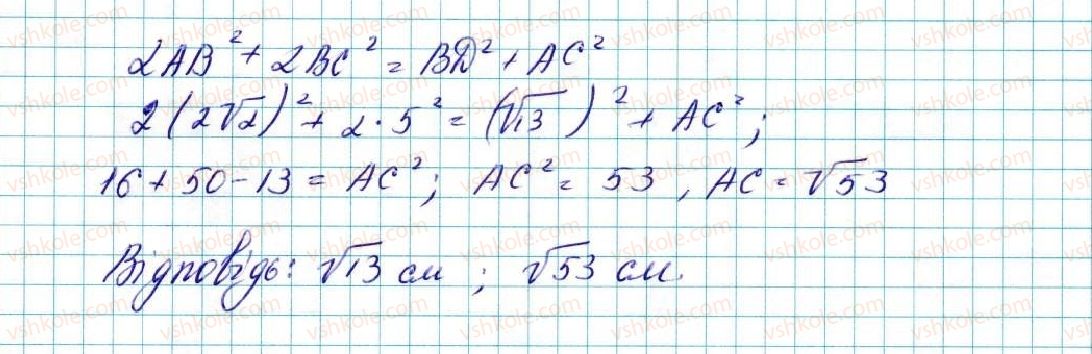 2AB² + 2BC² = BD² + AC²
2(2√2)² + 2·5² = (√13)² + AC²;
16 + 50 - 13 = AC²; AC² = 53, AC = √53
Відповідь: √13 см ; √53 см.